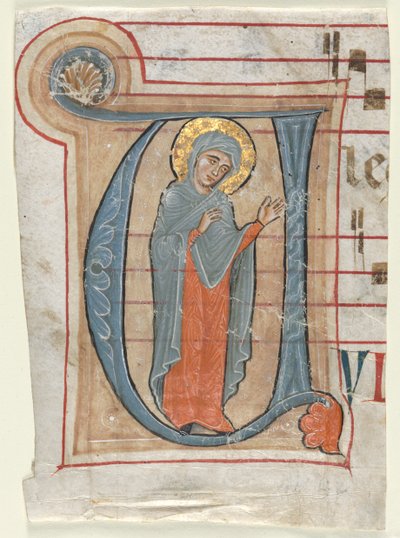 U
le
VI